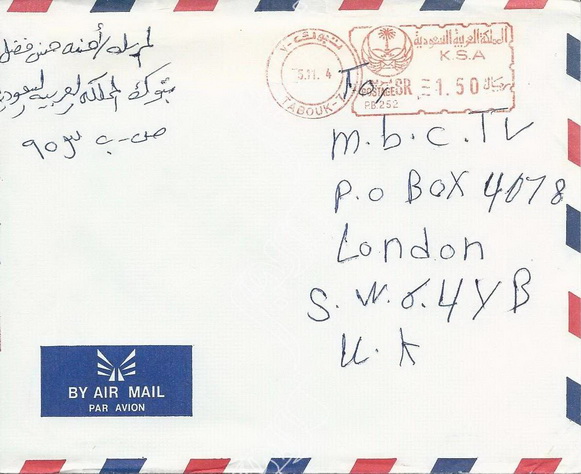 المرسله / أمنه حسن فضل
تبوك المملكه العربيه السعوديه
ص-ب ٩٥٣
تبوك-٧
5.11. 4
TABOUK-7
المملكة العربية السعودية
K.S.A
POSTAGE SR 1.50 ريال
PB.252
To.
m.b.c.TV
P.o BOX 4078
London
S.W.6.4YB
U.K
BY AIR MAIL
PAR AVION